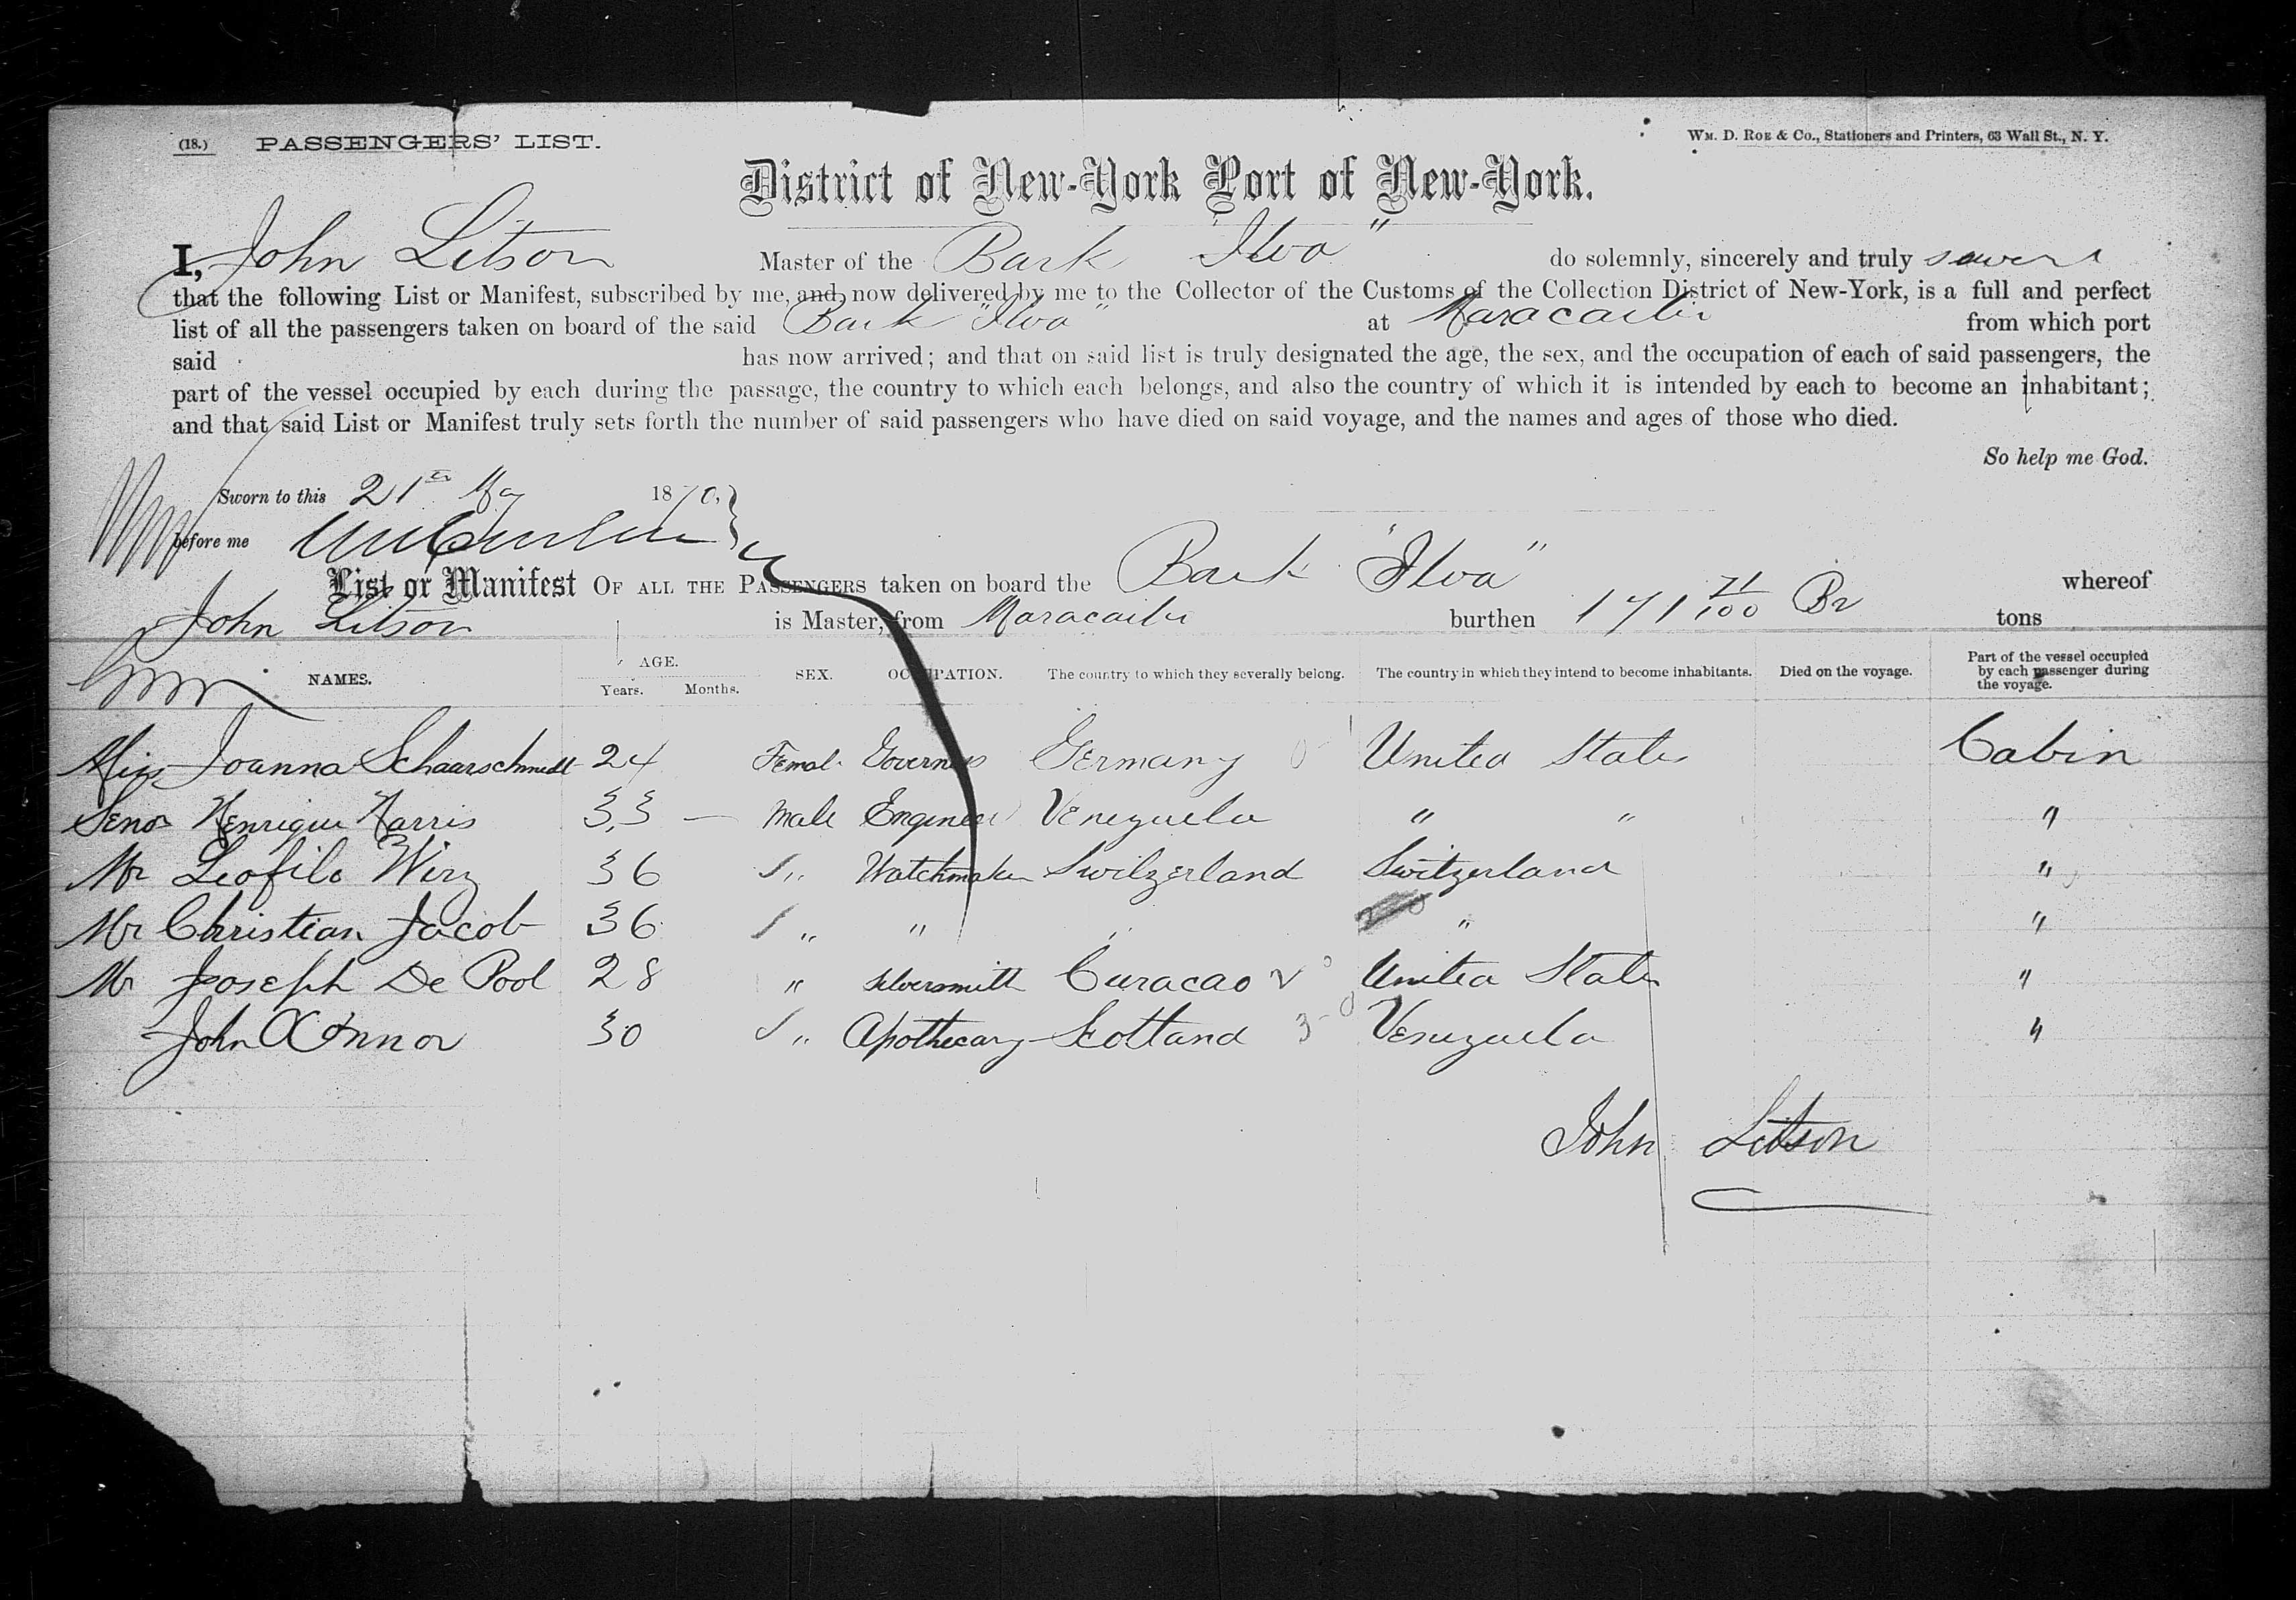 (18.) PASSENGERS' LIST. Wm. D. Roe & Co., Stationers and Printers, 63 Wall St., N. Y.
District of New-York Port of New-York.
I, John Litson Master of the Bark "Ilva" do solemnly, sincerely and truly swear
that the following List or Manifest, subscribed by me, and now delivered by me to the Collector of the Customs of the Collection District of New-York, is a full and perfect
list of all the passengers taken on board of the said Bark "Ilva" at Maracaibo from which port
said has now arrived; and that on said list is truly designated the age, the sex, and the occupation of each of said passengers, the
part of the vessel occupied by each during the passage, the country to which each belongs, and also the country of which it is intended by each to become an inhabitant;
and that said List or Manifest truly sets forth the number of said passengers who have died on said voyage, and the names and ages of those who died.
So help me God.
Sworn to this 21st May 1870,
before me
List or Manifest OF ALL THE PASSENGERS taken on board the Bark "Ilva" whereof
John Litson is Master, from Maracaibo burthen 171 71/100 Br tons
NAMES. AGE. Years. Months. SEX. OCCUPATION. The country to which they severally belong. The country in which they intend to become inhabitants. Died on the voyage. Part of the vessel occupied by each passenger during the voyage.
Miss Joanna Schaarschmidt 24 Femal. Governess Germany United States Cabin
Senor Henrique Harris 33 — male Engineer Venezuela " " "
Mr Leofilo Wirz 36 " Watchmaker Switzerland Switzerland "
Mr Christian Jacob 36 " " " " "
Mr Joseph De Pool 28 " silversmith Curacao United States "
John O'Connor 30 " Apothecary Scotland Venezuela "
John Litson